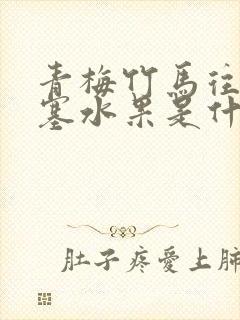 青梅竹馬往
塞水果是什
肚子疼愛上肺